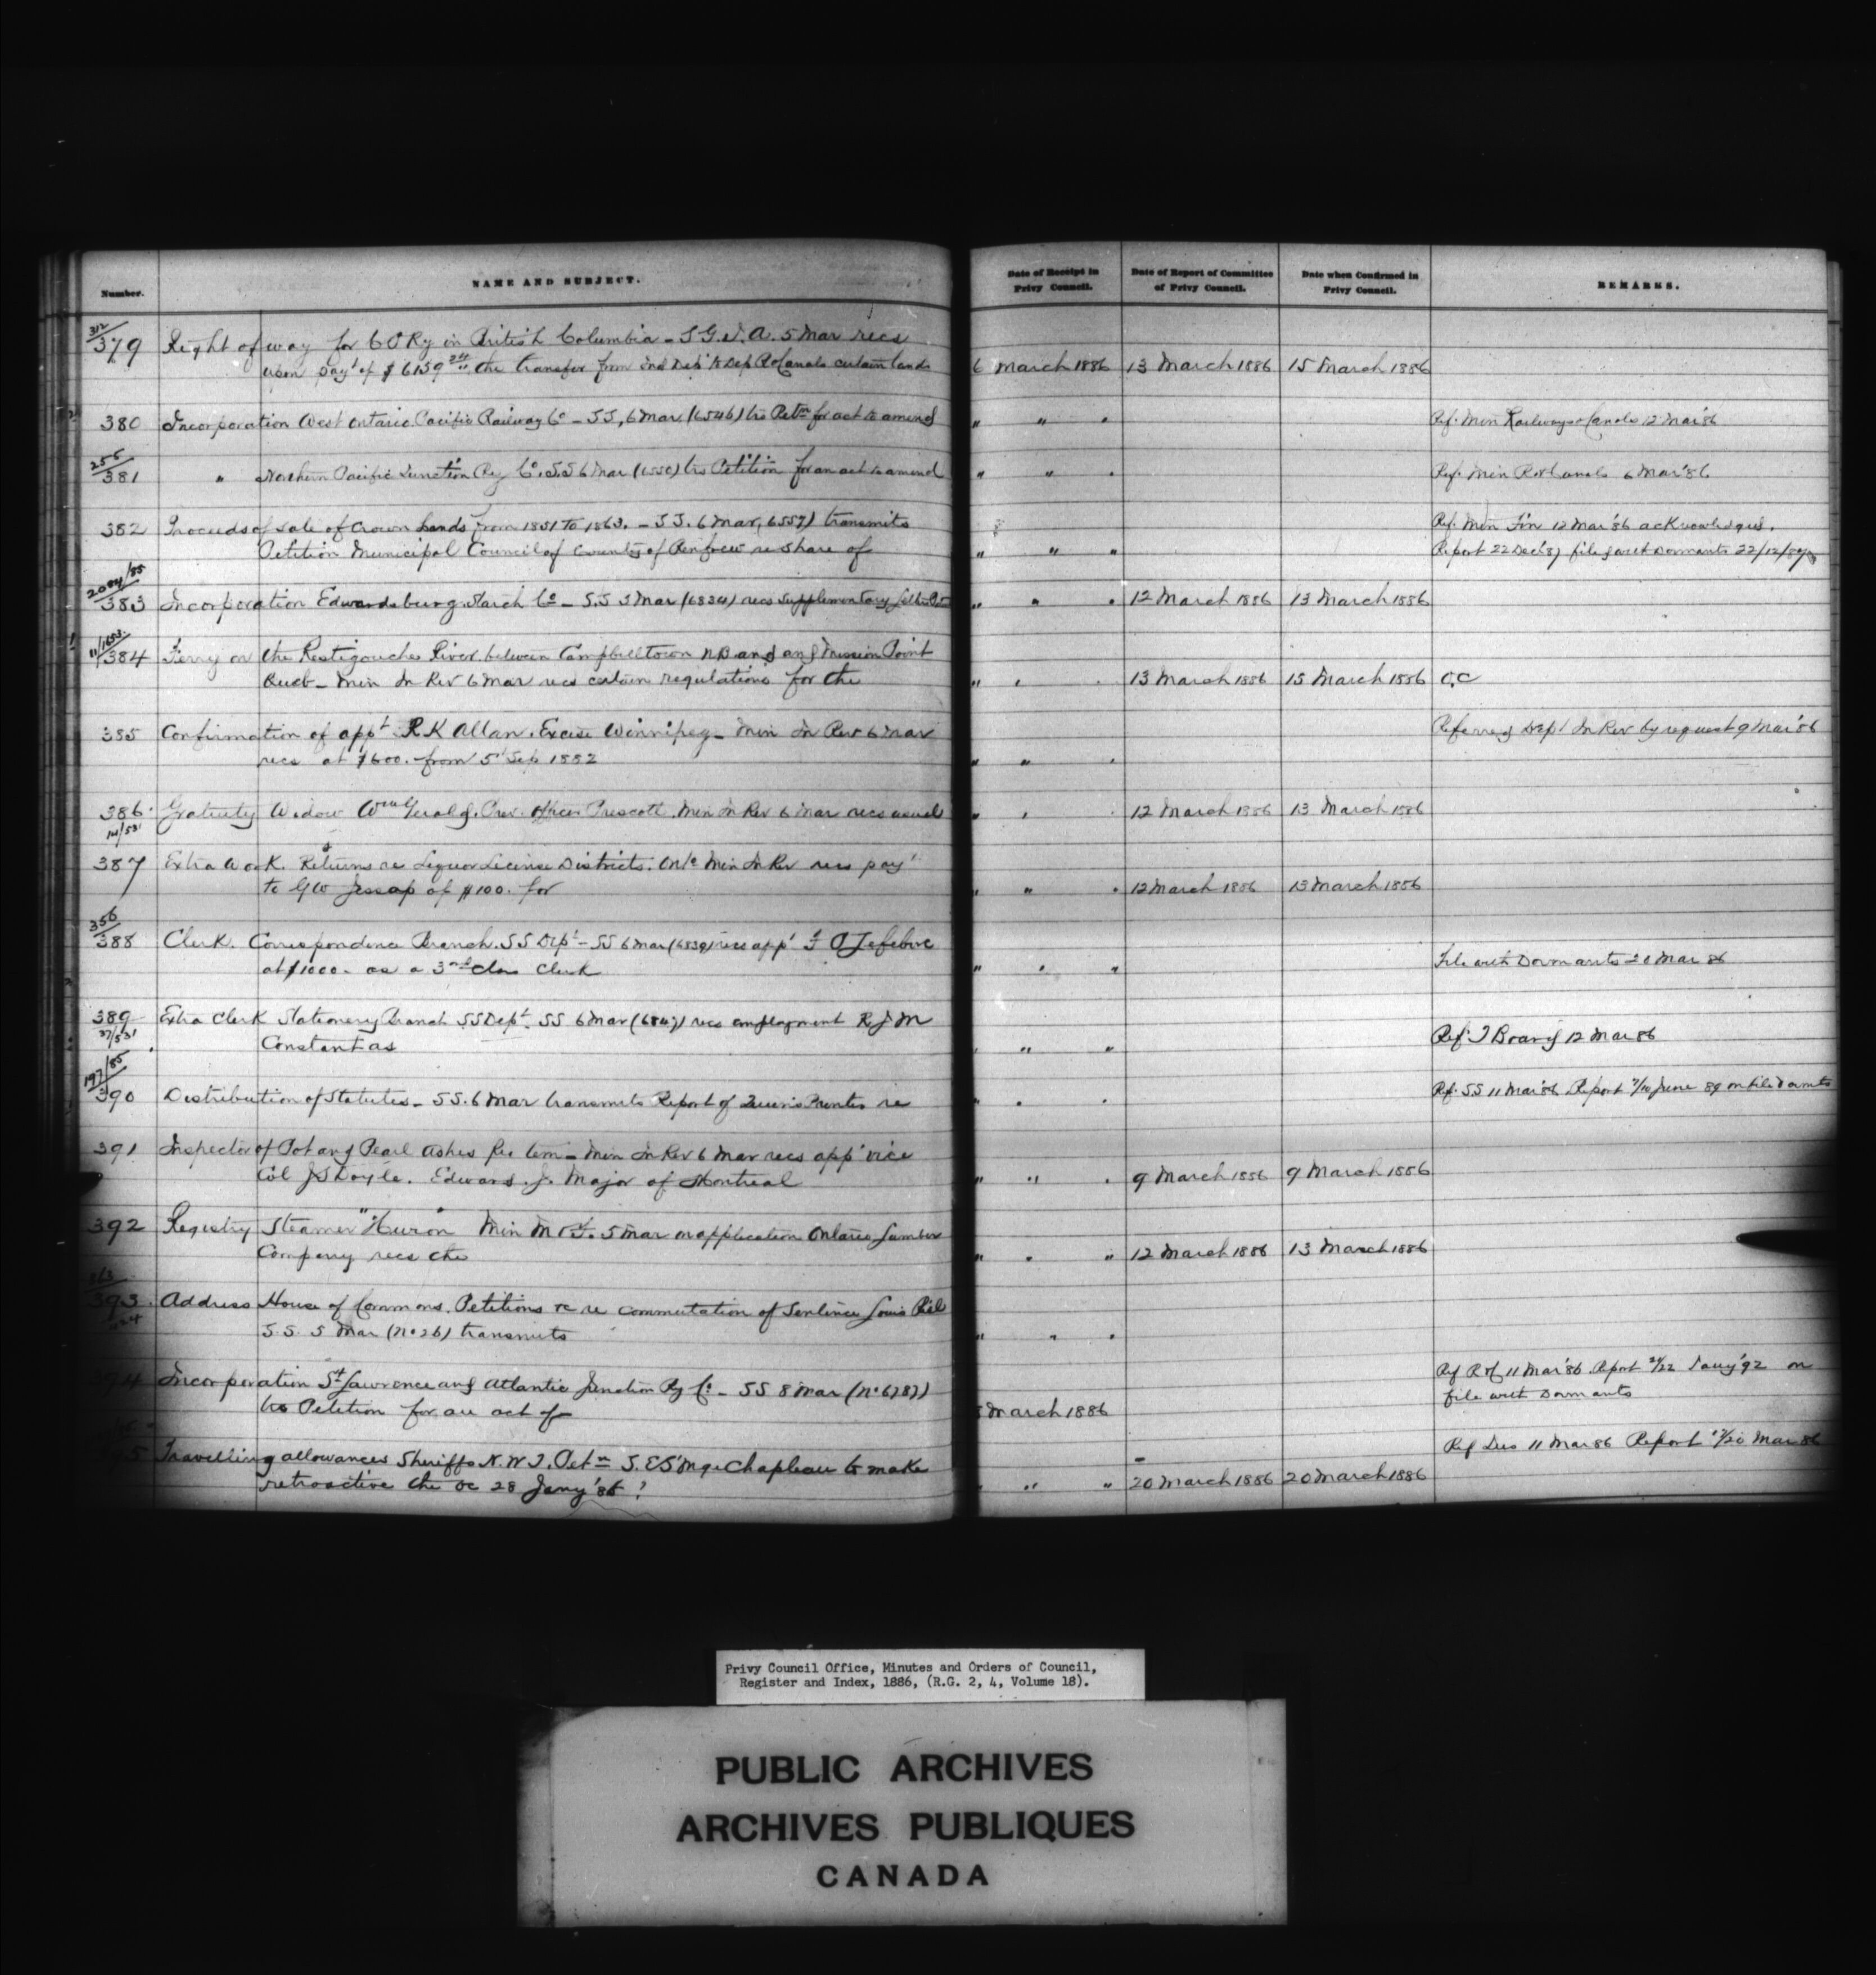 Number.
NAME AND SUBJECT.
Date of Receipt in Privy Council.
Date of Report of Committee of Privy Council.
Date when Confirmed in Privy Council.
REMARKS.
312/379 Right of way for C P Ry in British Columbia - S.G.I.A. 5 Mar recs
upon payt of $6159 24/.. the transfer from Ind Dept to Dep R & Canals certain lands 6 March 1886 13 March 1886 15 March 1886
380 Incorporation West Ontario Pacific Railway Co - S.S, 6 Mar (6546) trs Petn for act to amend " " " Ref. Min Railways & Canals 12 Mar '86
255/381 " Northern Pacific Junction Ry Co. S.S 6 Mar (6550) trs Petition for an act to amend " " " Ref. Min R & Canals 6 Mar '86
382 Proceeds of sale of Crown Lands from 1851 to 1863. - S S. 6 Mar (6557) transmits Ref. Min Fin 12 Mar '86 acknowledged.
Petition Municipal Council of County of Renfrew re share of " " " Report 22 Dec '87 filed with Dormants 22/12/87
2084/85 383 Incorporation Edwardsburg Starch Co - S.S 3 Mar (6834) recs supplementary " " " 12 March 1886 13 March 1886
384 Ferry on the Restigouche River between Campbelltown NB and Mission Point
Queb - Min In Rev 6 Mar recs certain regulations for the " " " 13 March 1886 15 March 1886 O,C
385 Confirmation of appt R K Allan. Excise Winnipeg - Min In Rev 6 Mar Referred Dept In Rev by request 9 Mar '86
recs at $600. from 5 Sep 1882 " " "
386 Gratuity Widow Wm Gerald. Prev. Officer Prescott. Min In Rev 6 Mar recs usual " " " 12 March 1886 13 March 1886
387 Extra Work. Returns re Liquor License Districts. Onto Min In Rev recs payt
to G W Jessap of $100. for " " " 12 March 1886 13 March 1886
356/388 Clerk. Correspondence Branch. S S Dept - SS 6 Mar (6839) recs appt Lefebvre
at $1000 - as a 3rd class Clerk " " " File with Dormants 20 Mar 86
389 37/531 Extra Clerk Stationery Branch SS Dept. SS 6 Mar (6847) recs employment R J M
Constant as " " " Ref. T Board 12 Mar 86
197/85 390 Distribution of Statutes - SS. 6 Mar transmits Report of Queen's Printer re " " " Ref. SS 11 Mar '86 Report 7/10 June 89 on file Dormts
391 Inspector of Pot and Pearl Ashes pro tem - Min In Rev 6 Mar recs appt vice
Col J S Doyle. Edward. J. Major of Montreal " " " 9 March 1886 9 March 1886
392 Registry Steamer "Huron" Min M & F. 5 Mar on application Ontario Lumber
Company recs the " " " 12 March 1886 13 March 1886
393 Address House of Commons. Petitions &c re commutation of Sentence Louis Riel
S.S. 5 Mar (No 26) transmits " " "
Incorporation St Lawrence and Atlantic Junction Ry Co - SS 8 Mar (No 6787) Ref R & C 11 Mar '86. Report 21/22 Jany '92 on
trs Petition for an act of 8 March 1886 file with Dormants
Travelling allowances Sheriffs N.W.T. Petn S. E St Onge Chapleau to make Ref Jus 11 Mar 86 Report 17/20 Mar 86
retroactive the OC 28 Jany '86 ? " " " 20 March 1886 20 March 1886
Privy Council Office, Minutes and Orders of Council,
Register and Index, 1886, (R.G. 2, 4, Volume 18).
PUBLIC ARCHIVES
ARCHIVES PUBLIQUES
CANADA